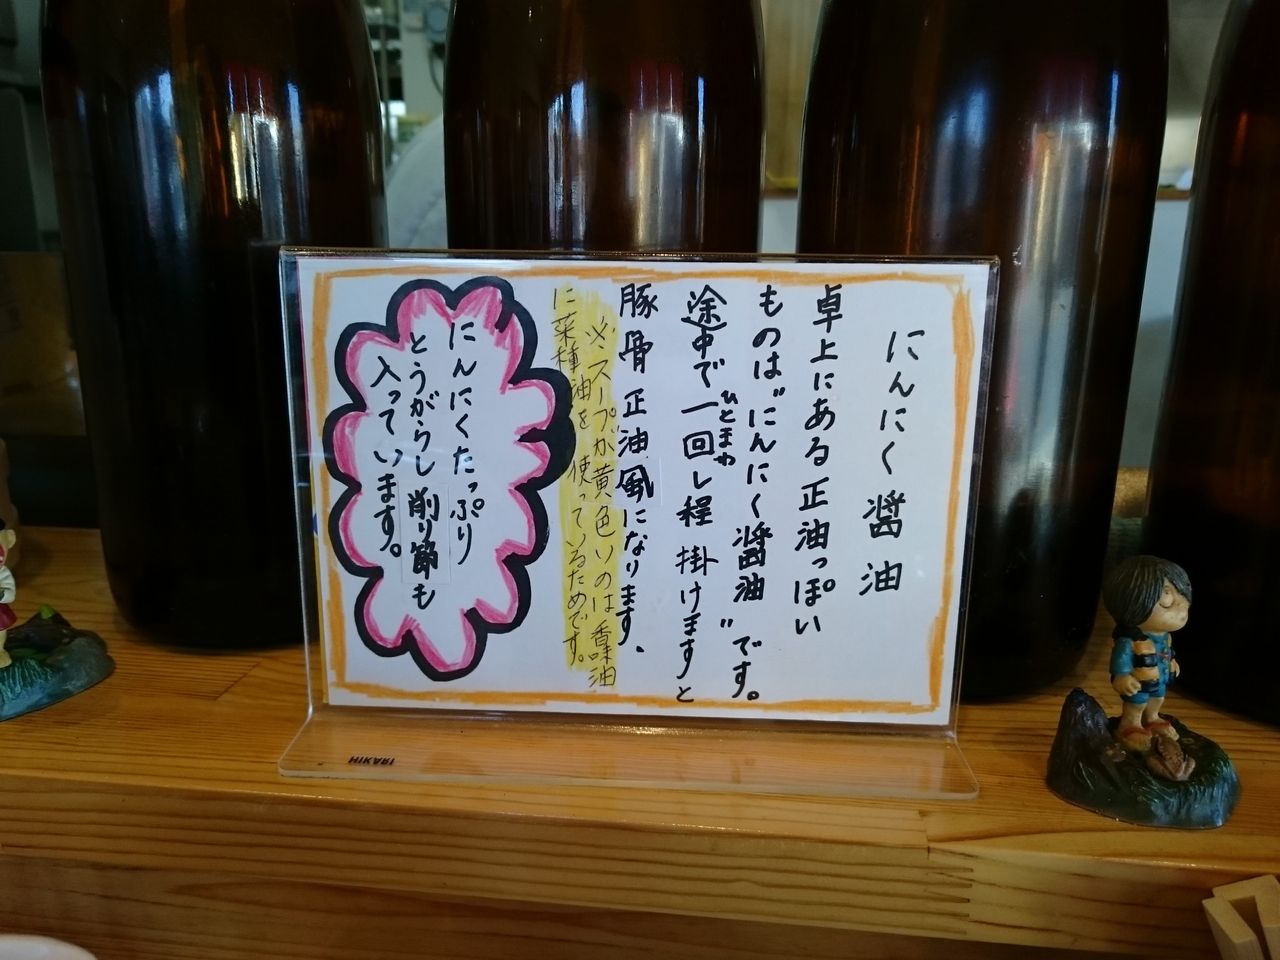 にんにく醤油
卓上にある正油っぽい
ものは"にんにく醤油"です。
途中で一回し程掛けますと
ひとまわ
豚骨正油風になります、
※スープが黄色いのは香味油
に菜種油を使っているためです。
にんにくたっぷり
とうがらし削り節も
入っています。
HIKARI